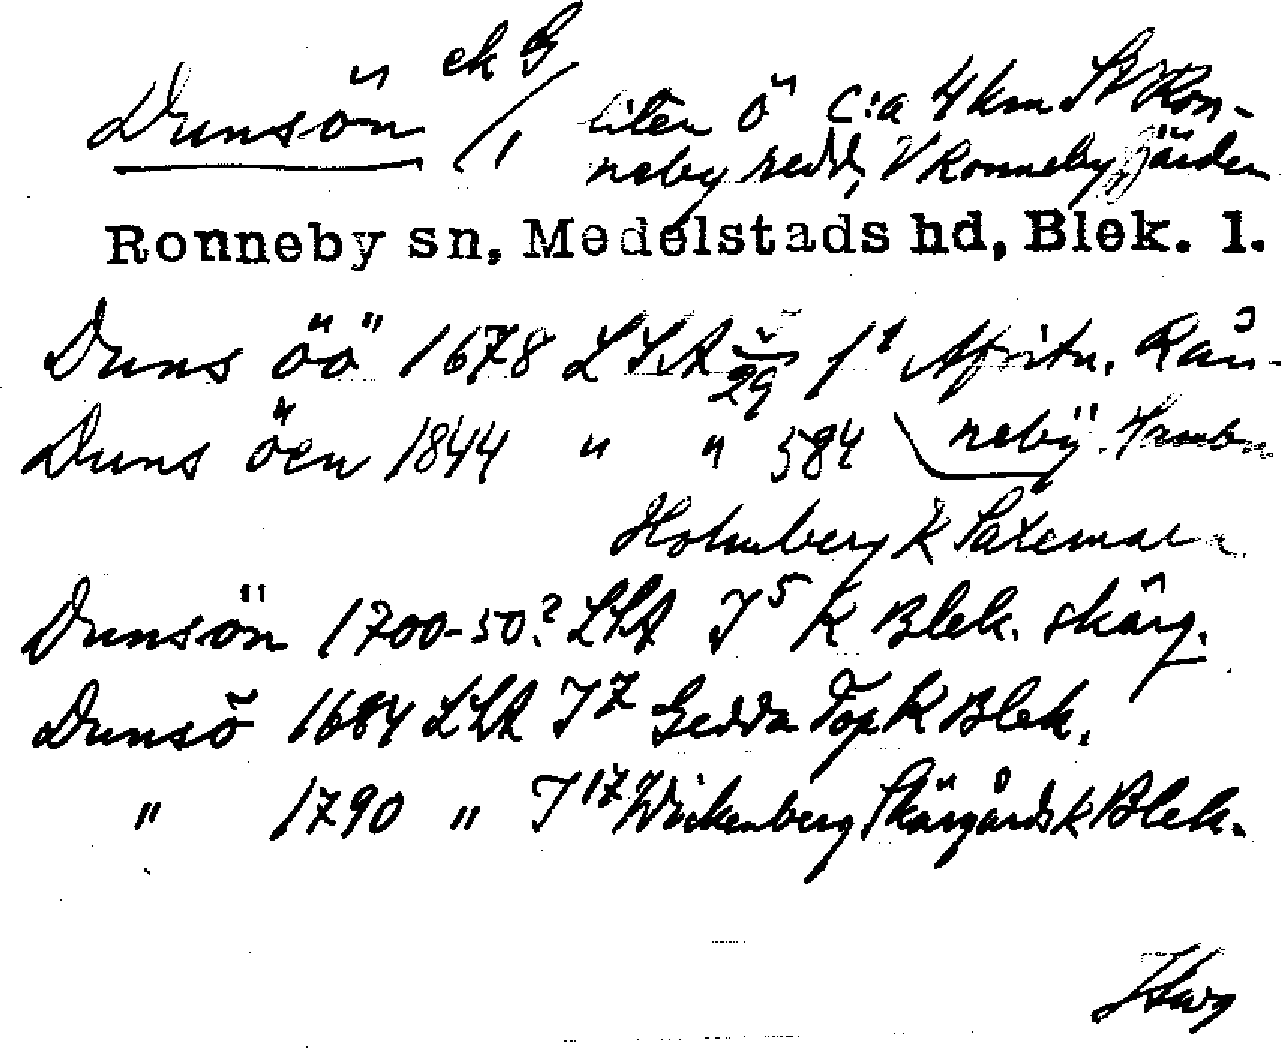 ek G
Dunsön liten ö c:a 4 km SV Ron-
neby redd, V Ronnebyfjärden
Ronneby sn, Medelstads hd, Blek. l.
Duns öö 1678 LSA 29 Afritn. Råu-
Duns öen 1844 " " 584 nebÿ
Holmberg K Saxemara
Dunsön 1700-50? LSA I 5 K Blek. skärg.
Dunsö 1684 LSA I 7 Gedda Top K Blek.
" 1790 " I 17 Wickenberg Skärgårds K Blek.